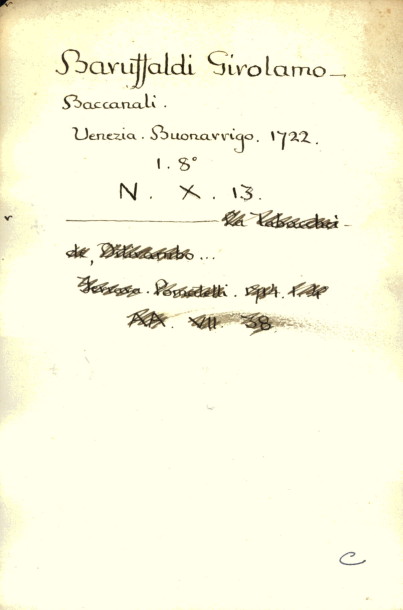 Baruffaldi Girolamo_
Baccanali.
Venezia. Buonarrigo. 1722.
1. 8°
N. X. 13.
38
C